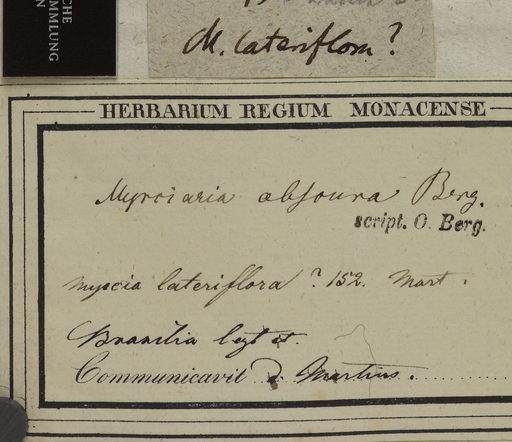 CHE
MMLUNG
EN
M. lateriflora?
HERBARIUM REGIUM MONACENSE
Myrciaria obscura Berg.
script. O. Berg.
Myrcia lateriflora? 152. Mart.
Brasilia legt et.
Communicavit D. Martius.